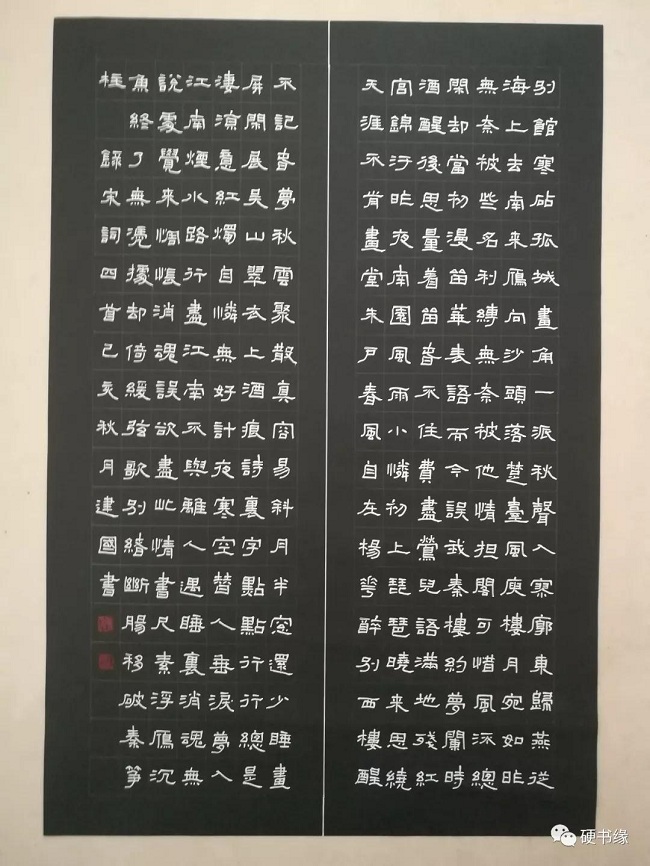 别館寒砧孤城畫角一派秋聲入寥廓東歸燕從
海上去南来雁向沙頭落楚臺風庾樓月宛如昨
無奈被些名利縛無奈被他情担閣可惜風流總
閑却當初漫留華表語而今誤我秦樓約夢闌時
酒醒後思量着留春不住費盡鶯兒語滿地殘紅
宫錦污昨夜南園風雨小憐初上琵琶曉来思繞
天涯不肯畫堂朱户春風自在楊花醉别西樓醒
不記春夢秋雲聚散真容易斜月半窓還少睡畫
屏閑展吴山翠衣上酒痕詩裏字點點行行總是
凄涼意紅燭自憐無好計夜寒空替人垂淚夢入
江南煙水路行盡江南不與離人遇睡裏消魂無
說處覺来惆悵消魂誤欲盡此情書尺素浮雁沉
魚終了無憑據却倚緩弦歌别緒斷腸移破秦筝
柱 錄宋詞四首己亥秋月建國書
硬书缘